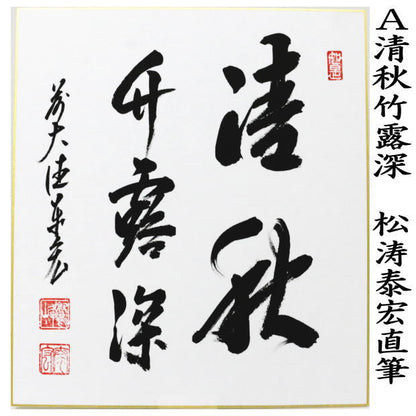 A清秋竹露深 松涛泰宏直筆
清秋
竹露深
前大徳泰宏